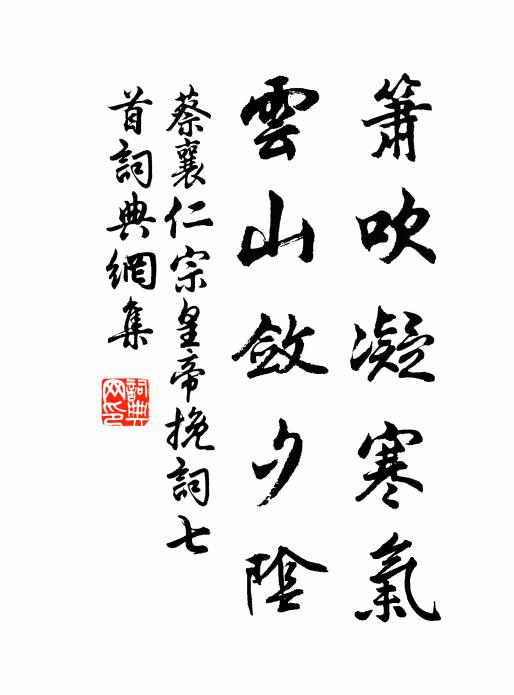 簫吹凝寒氣
雲山斂夕陰
蔡襄仁宗皇帝挽詞七
首詞典網集
詞典
网印